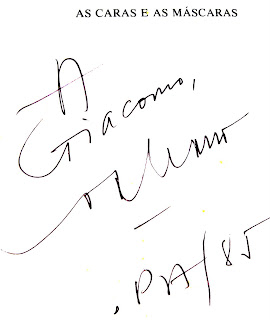 AS CARAS E AS MÁSCARAS
A
Giacomo,
, PA/85